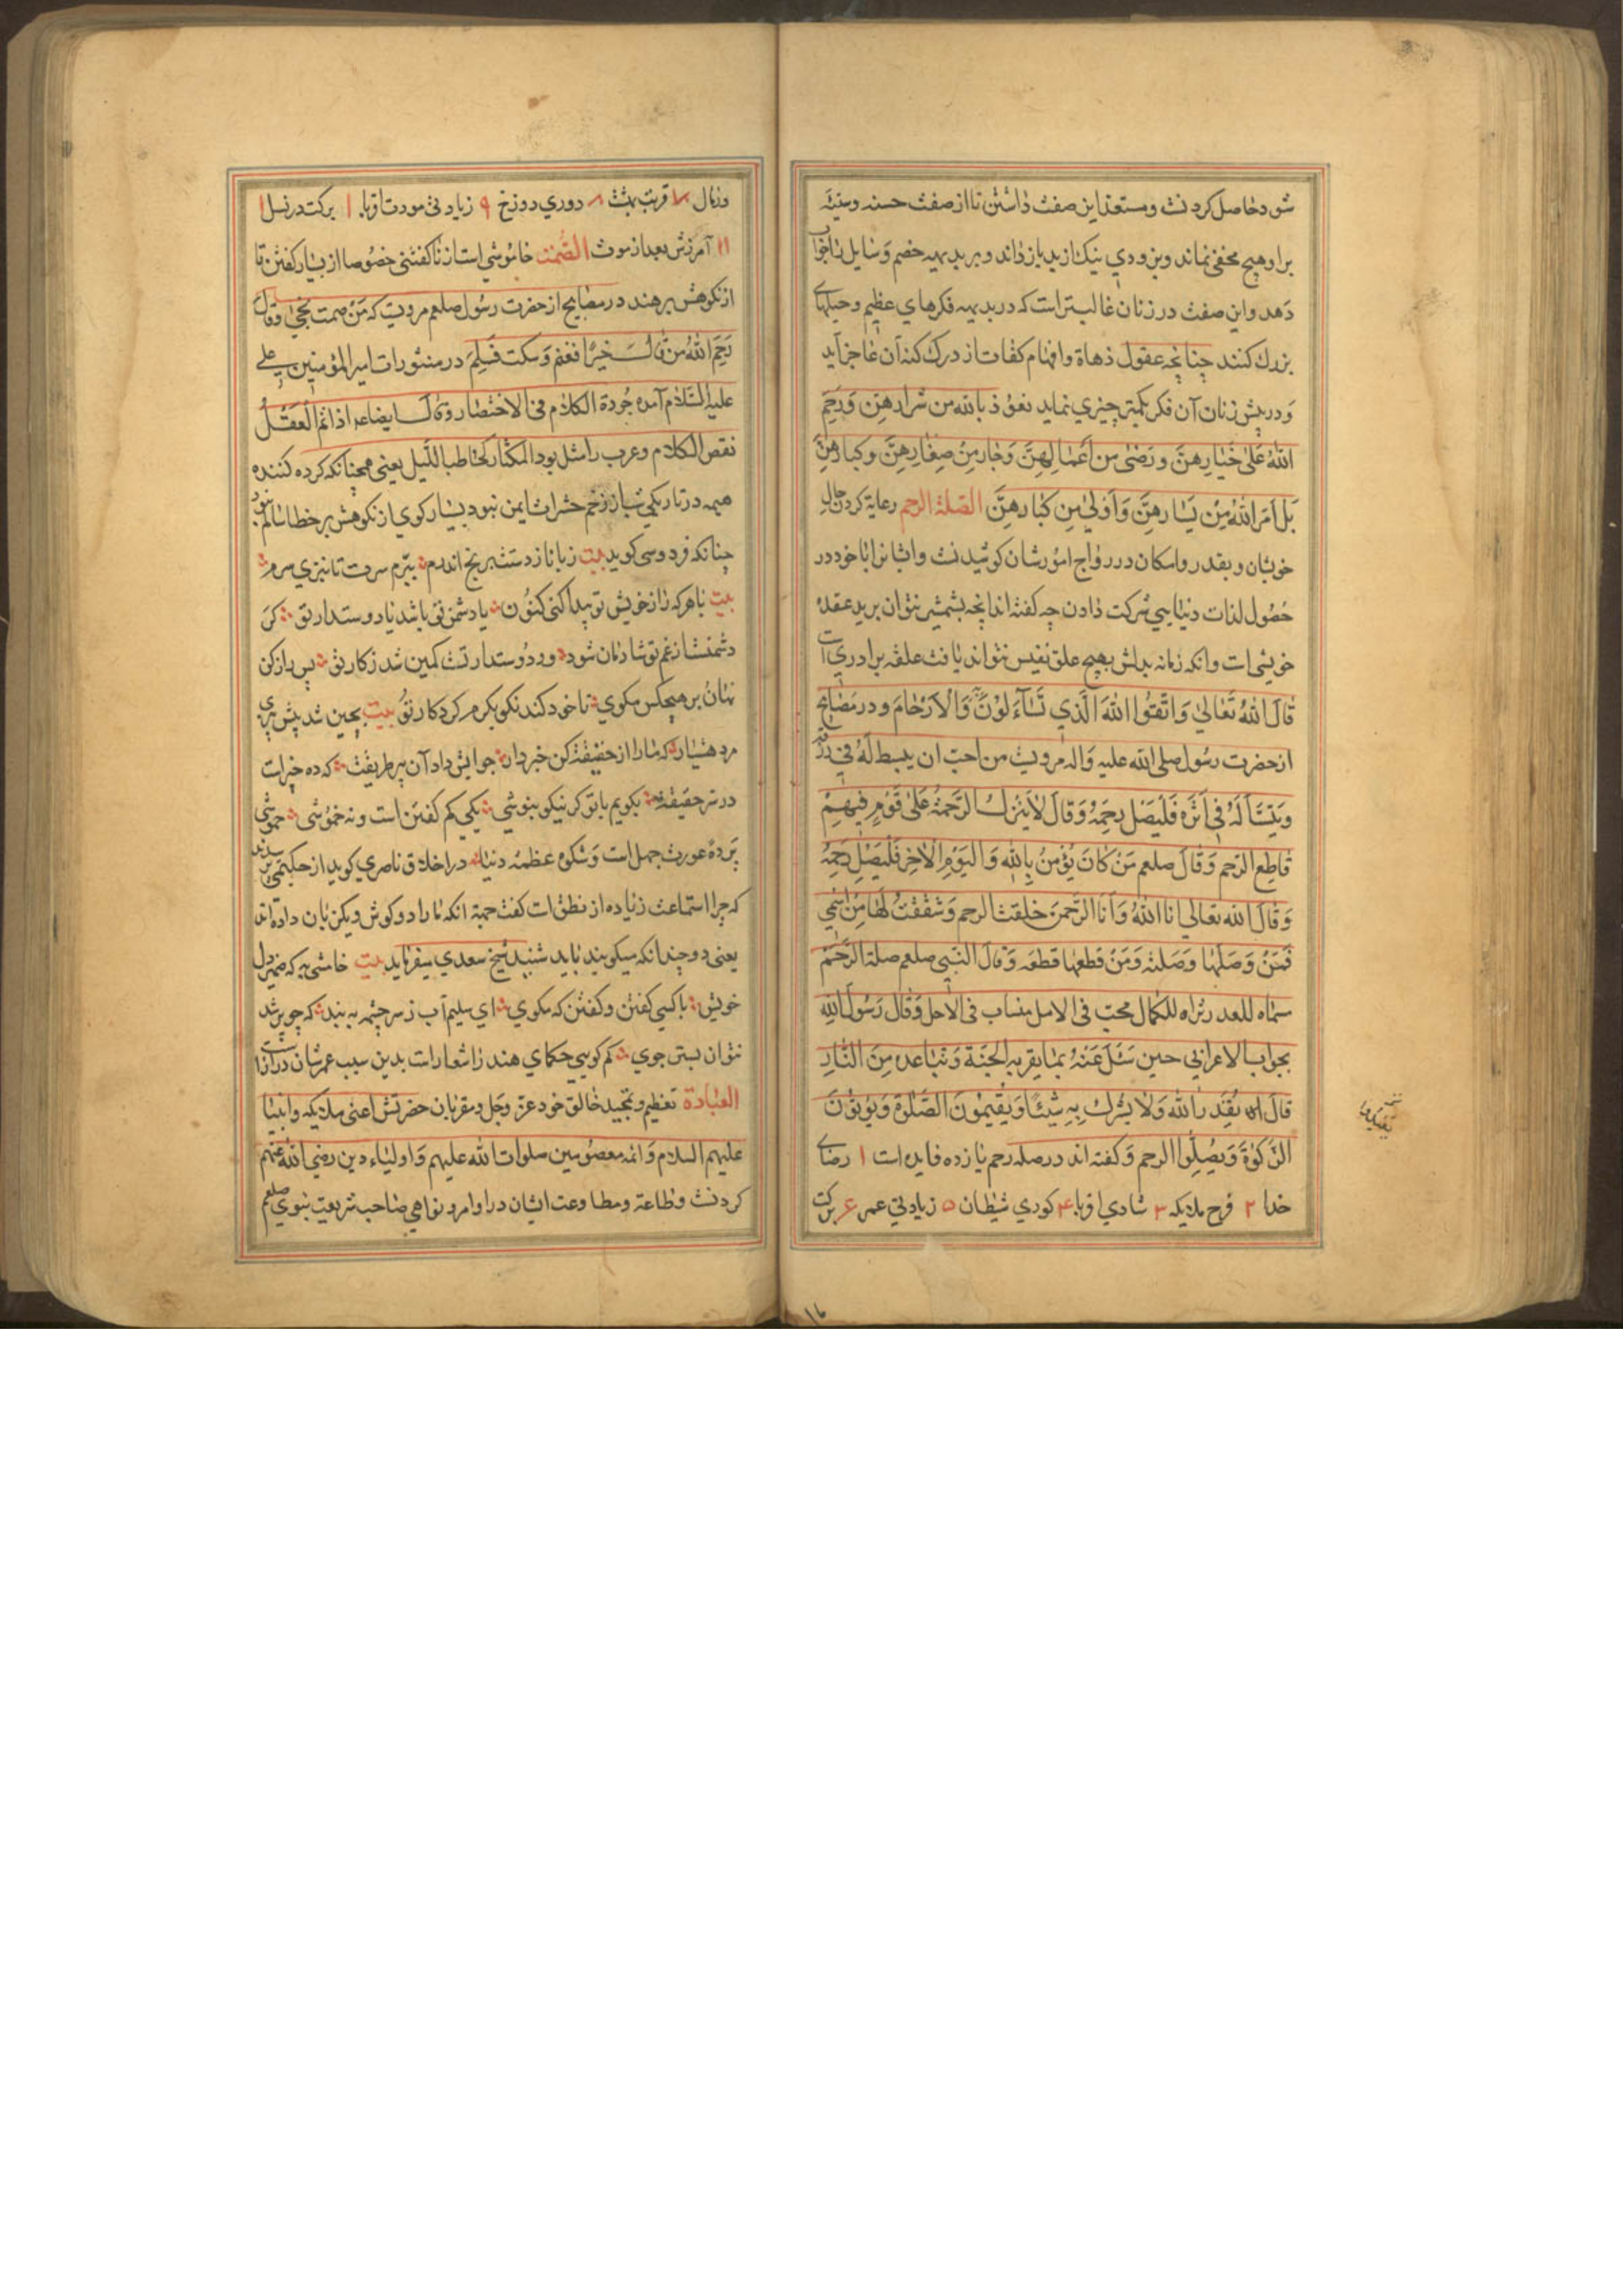 شود حاصل کردنست و مستعد این صفت داشتن تا از صفت حسنه و سیئه
بر او هیچ مخفی نماند و بزودی نیک از بد باز داند و بر بدیهه خصم و سایل را جواب
دهد و این صفت در زنان غالبتر است که در بدیهه فکرهای عظیم و حیلهای
بزرك کنند چنانچه عقول دهاة و افهام کفات از درك کنه آن عاجز آید
و در پیش زنان آن فکر کمتر چیزی نماید نعوذ بالله من شرارهن و رحم
الله علی خیارهن و رضی من اعمالهن و جار من صغارهن و کبارهن
بل امر الله من یسارهن و اولی من کبارهن الصلة الرحم رعایة کردن حال
خویشان و بقدر و امکان در رواج امورشان کوشیدنست و ایشانرا با خود در
حصول لذات دنیایی شرکت دادن چه کفته اند انچه بشمشیر نتوان برید عقده
خویشی است و انکه زمانه بدلش بهیچ علق نفیس نتواند یافت علقه برادری است
قال الله تعالی واتقوا الله الذی تساءلون به والارحام و در مصابیح
از حضرت رسول صلی الله علیه و اله مرویست من احب ان یبسط له فی رزقه
وینسأ له فی اثره فلیصل رحمه وقال لا ینزل الرحمة علی قوم فیهم
قاطع الرحم وقال صلعم من کان یؤمن بالله والیوم الاخر فلیصل رحمه
وقال الله تعالی انا الله وانا الرحمن خلقت الرحم وشققت لها من اسمی
فمن وصلها وصلته ومن قطعها قطعه وقال النبی صلعم صلة الرحم
فی الاجل وقال رسول الله
بجواب الاعرابی حین سئل عنه بما یقربه الجنة وتباعده من النار
قال ان الله ولا یشرك به شیئا ویقیمون الصلوة ویؤتون
الزکوة ویصلوا الرحم و کفته اند در صله رحم یازده فایده است ۱ رضای
خدا ۲ فرح ملایکه ۳ شادی اقربا ۴ کوری شیطان ۵ زیادتی عمر ۶ برکت
در مال ۷ قربت بهشت ۸ دوری دوزخ ۹ زیادتی مودت اقربا ۱۰ برکت در نسل
۱۱ آمرزش بعد از موت الصمت خاموشی است از ناکفتنی خصوصا از بسیار کفتن تا
از نکوهش برهند در مصابیح از حضرت رسول صلعم مرویست که من صمت نجی وقال
رحم الله من قال خیرا فغنم وسکت فسلم در منثورات امیر المؤمنین علی
علیه السلام آمده جودة الکلام فی الاختصار وقال ایضا علم اذا تم العقل
نقص الکلام و عرب را مثل بود المکثار کحاطب اللیل یعنی همچنانکه کرد کننده
هیمه در تاریکی شب از زخم حشرات ایمن نبود بسیار کوی از نکوهش بر خطا سالم نبود
چنانکه فردوسی کوید بیت زبانا ز دستت برنج اندرم ببرم سرت تا نبری سرم
بیت با هر که راز خویش تو پیدا کنی کنون یا دشمن تو باشد یا دوستدار تو کر
دشمنست از غم تو شادمان شود ور دوستدار تست کمین شد ز کار تو پس راز کن
نهان بر هیچکس مکوی تا خود کند نکو بکرم کردکار تو بیت بچین شد پیش پیری
مرد هشیار که مارا از حقیقت کن خبردار جوابش داد آن پیر طریقت که ده خیر است
در سر حقیقت بکویم با تو کر نیکو بنوشی یکی کم کفتن است و نه خموشی خموشی
پرده عورت جهل است و شکوه عظمة دنیا در اخلاق ناصری کوید از حکیمی پرسیدند
که چرا استماعت زیاده از نطق است کفت جهة انکه مارا دو کوش و یکزبان داده اند
یعنی دو چندانکه میکویند باید شنید شیخ سعدی میفرماید بیت خامشی به که ضمیر دل
خویش با کسی کفتن و کفتن که مکوی ای سلیم آب ز سر چشمه ببند که چو پر شد
نتوان بستن جوی کم کویی حکمای هند را شعار است بدین سبب عمرشان دراز است
العبادة تعظیم و تمجید خالق خود عز وجل و مقربان حضرتش اعنی ملایکه و انبیا
علیهم السلام و ائمه معصومین صلوات الله علیهم و اولیاء دین رضی الله عنهم
کردنست و طاعة و مطاوعت ایشان در اوامر و نواهی صاحب شریعت نبوی صلعم
۱۶